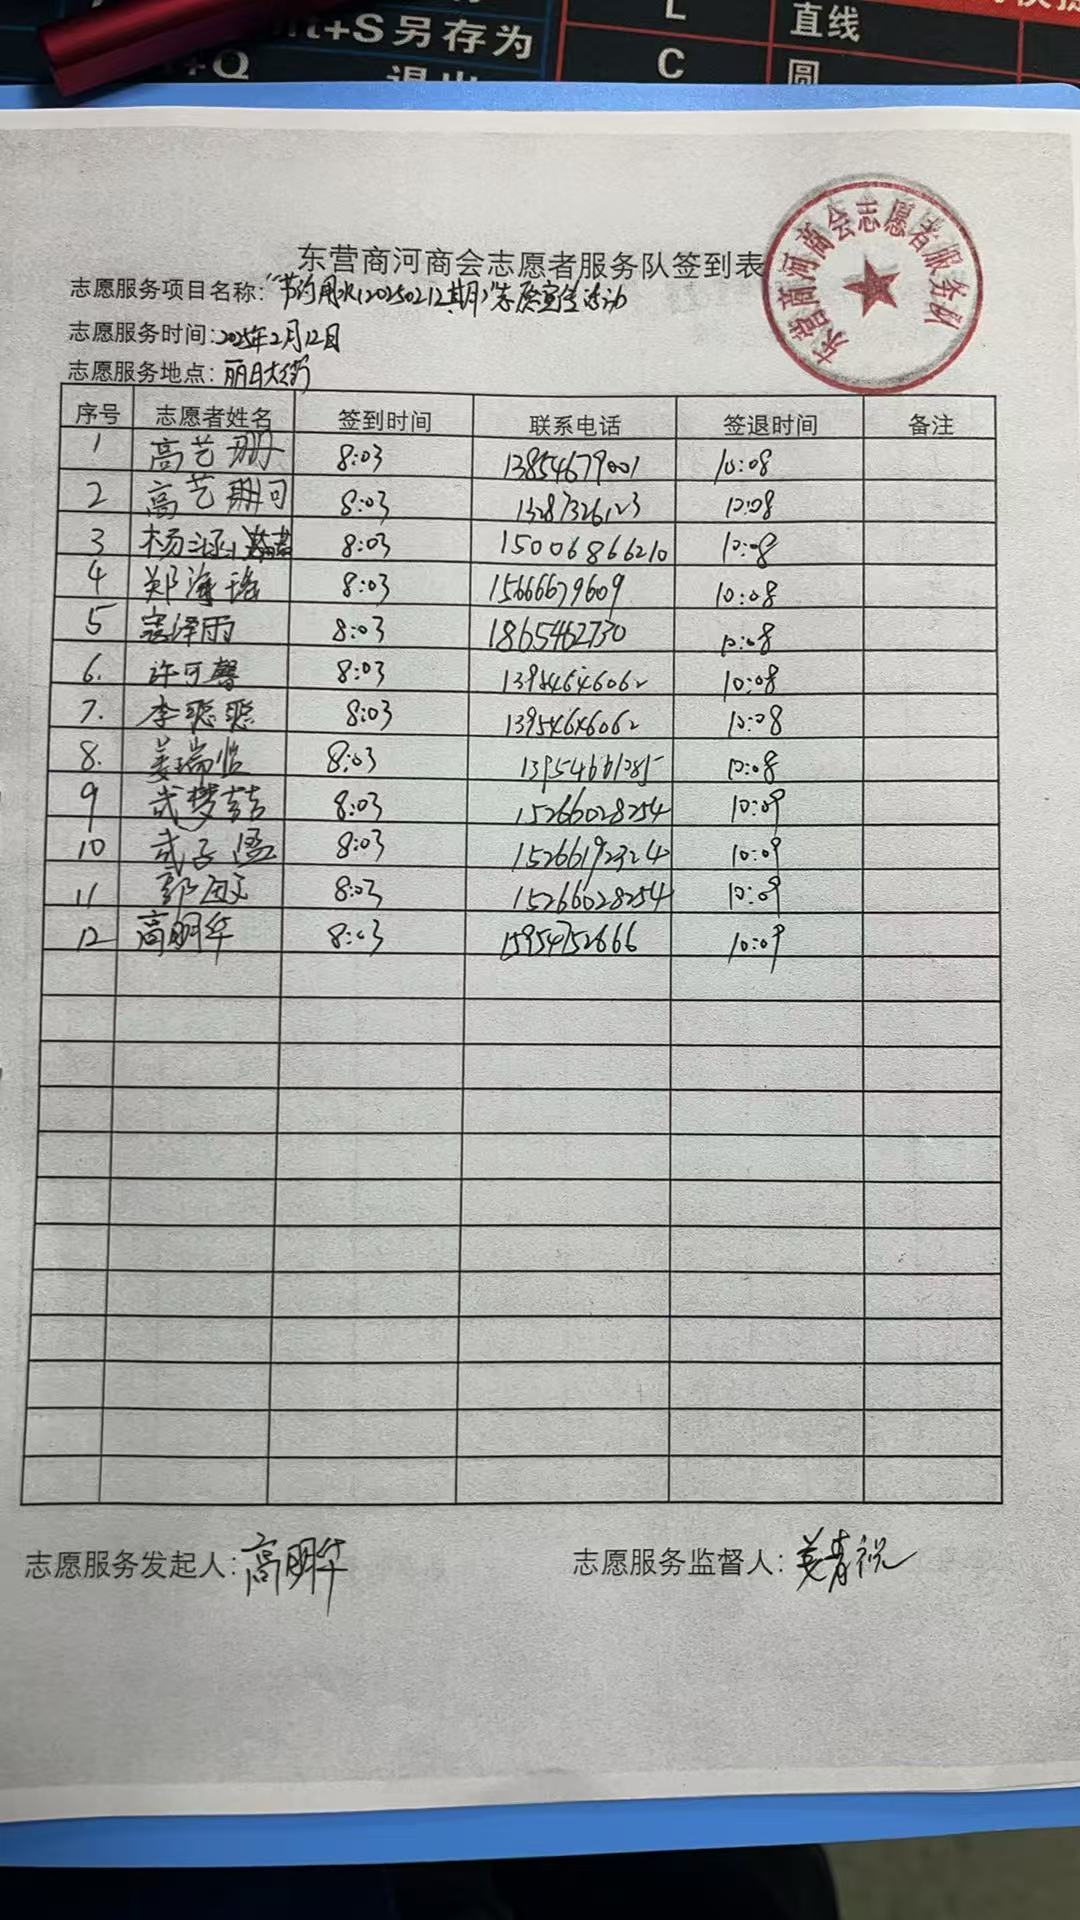 L
直线
lt+S另存为
C
圆
+Q
退出
东营商河商会志愿者服务队
东营商河商会志愿者服务队签到表
志愿服务项目名称:"节约用水(20250212期)"志愿宣传活动
志愿服务时间:2025年2月12日
志愿服务地点:丽日大街
序号 志愿者姓名 签到时间 联系电话 签退时间 备注
1 高艺珊 8:03 13854679001 10:08
2 高艺 8:03 13287326123 10:08
3 杨涵 8:03 15006866210 10:08
4 郑海瑶 8:03 15666679609 10:08
5 寇泽雨 8:03 1865462730 10:08
6. 许可馨 8:03 13954646062 10:08
7. 李聪聪 8:03 13954646062 10:08
8. 姜瑞 8:03 10:08
9 武梦喆 8:03 15266028254 10:09
10 武子 8:03 15266192324 10:09
11 郭 8:03 15266028254 10:09
12 高明华 8:03 15954752666 10:09
志愿服务发起人:高明华
志愿服务监督人:姜青祝